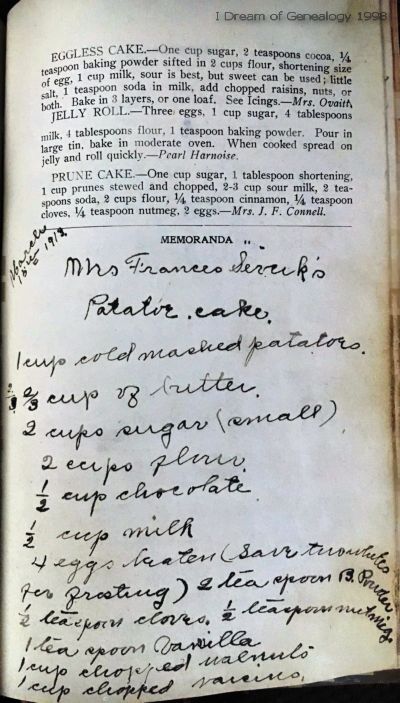 I Dream of Genealogy 1998
EGGLESS CAKE.—One cup sugar, 2 teaspoons cocoa, ¼
teaspoon baking powder sifted in 2 cups flour, shortening size
of egg, 1 cup milk, sour is best, but sweet can be used; little
salt, 1 teaspoon soda in milk, add chopped raisins, nuts, or
both. Bake in 3 layers, or one loaf. See Icings.—Mrs. Ovaitt.
JELLY ROLL.—Three eggs, 1 cup sugar, 4 tablespoons
milk, 4 tablespoons flour, 1 teaspoon baking powder. Pour in
large tin, bake in moderate oven. When cooked spread on
jelly and roll quickly.—Pearl Harnoise.
PRUNE CAKE.—One cup sugar, 1 tablespoon shortening,
1 cup prunes stewed and chopped, 2-3 cup sour milk, 2 tea-
spoons soda, 2 cups flour, ¼ teaspoon cinnamon, ¼ teaspoon
cloves, ¼ teaspoon nutmeg, 2 eggs.—Mrs. J. F. Connell.
MEMORANDA
March
Mrs Frances
Patatoe cake.
1 cup cold mashed patatoes.
2/3 cup of butter.
2 cups sugar (small)
2 cups flour
½ cup chocolate
½ cup milk
4 eggs beaten (save two whites
for frosting) 2 tea spoon B. Powder
½ teaspoon cloves. ½ teaspoon nutmeg
1 tea spoon Vanilla
1 cup chopped walnuts
1 cup chopped raisins.